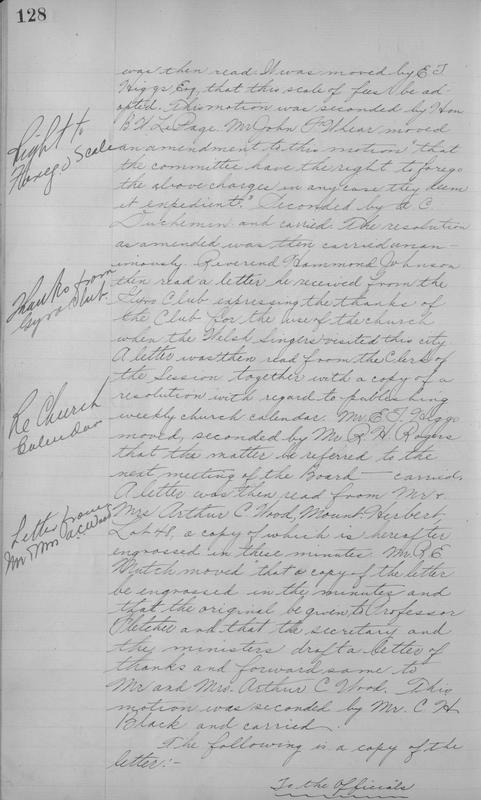 128
was then read. It was moved by E T
Higgs, Esq, that this scale of fees be ad-
opted. This motion was seconded by Hon
B. W. LePage. Mr John P Whear moved
an amendment to this motion "that
Right to
Forego Scale
the committee have the right to forego
the above charges in any case they deem
it expedient." Seconded by A C.
Duchemin and carried. The resolution
as amended was then carried unan-
imously. Reverend Hammond Johnson
Thanks from
Gyro Club.
then read a letter he received from the
Gyro Club expressing the thanks of
the Club for the use of the church
when the Welsh Singers visited this city.
A letter was then read from the Clerk of
the Session together with a copy of a
Re Church
Calendar
resolution with regard to publishing
weekly church calendar. Mr. E T Higgs
moved, seconded by Mr L. H. Rogers
that the matter be referred to the
next meeting of the Board — carried.
A letter was then read from Mr &
Letter from
Mr & Mrs A C Wood
Mrs Arthur C Wood, Mount Herbert,
Lot 48, a copy of which is hereafter
engrossed in these minutes. Mr. R E
Mutch moved "that a copy of the letter
be engrossed in the minutes and
that the original be given to Professor
Fletcher and that the secretary and
the ministers draft a letter of
thanks and forward same to
Mr and Mrs. Arthur C Wood. This
motion was seconded by Mr. C H
Black and carried.
The following is a copy of the
letter:-
To the Officials